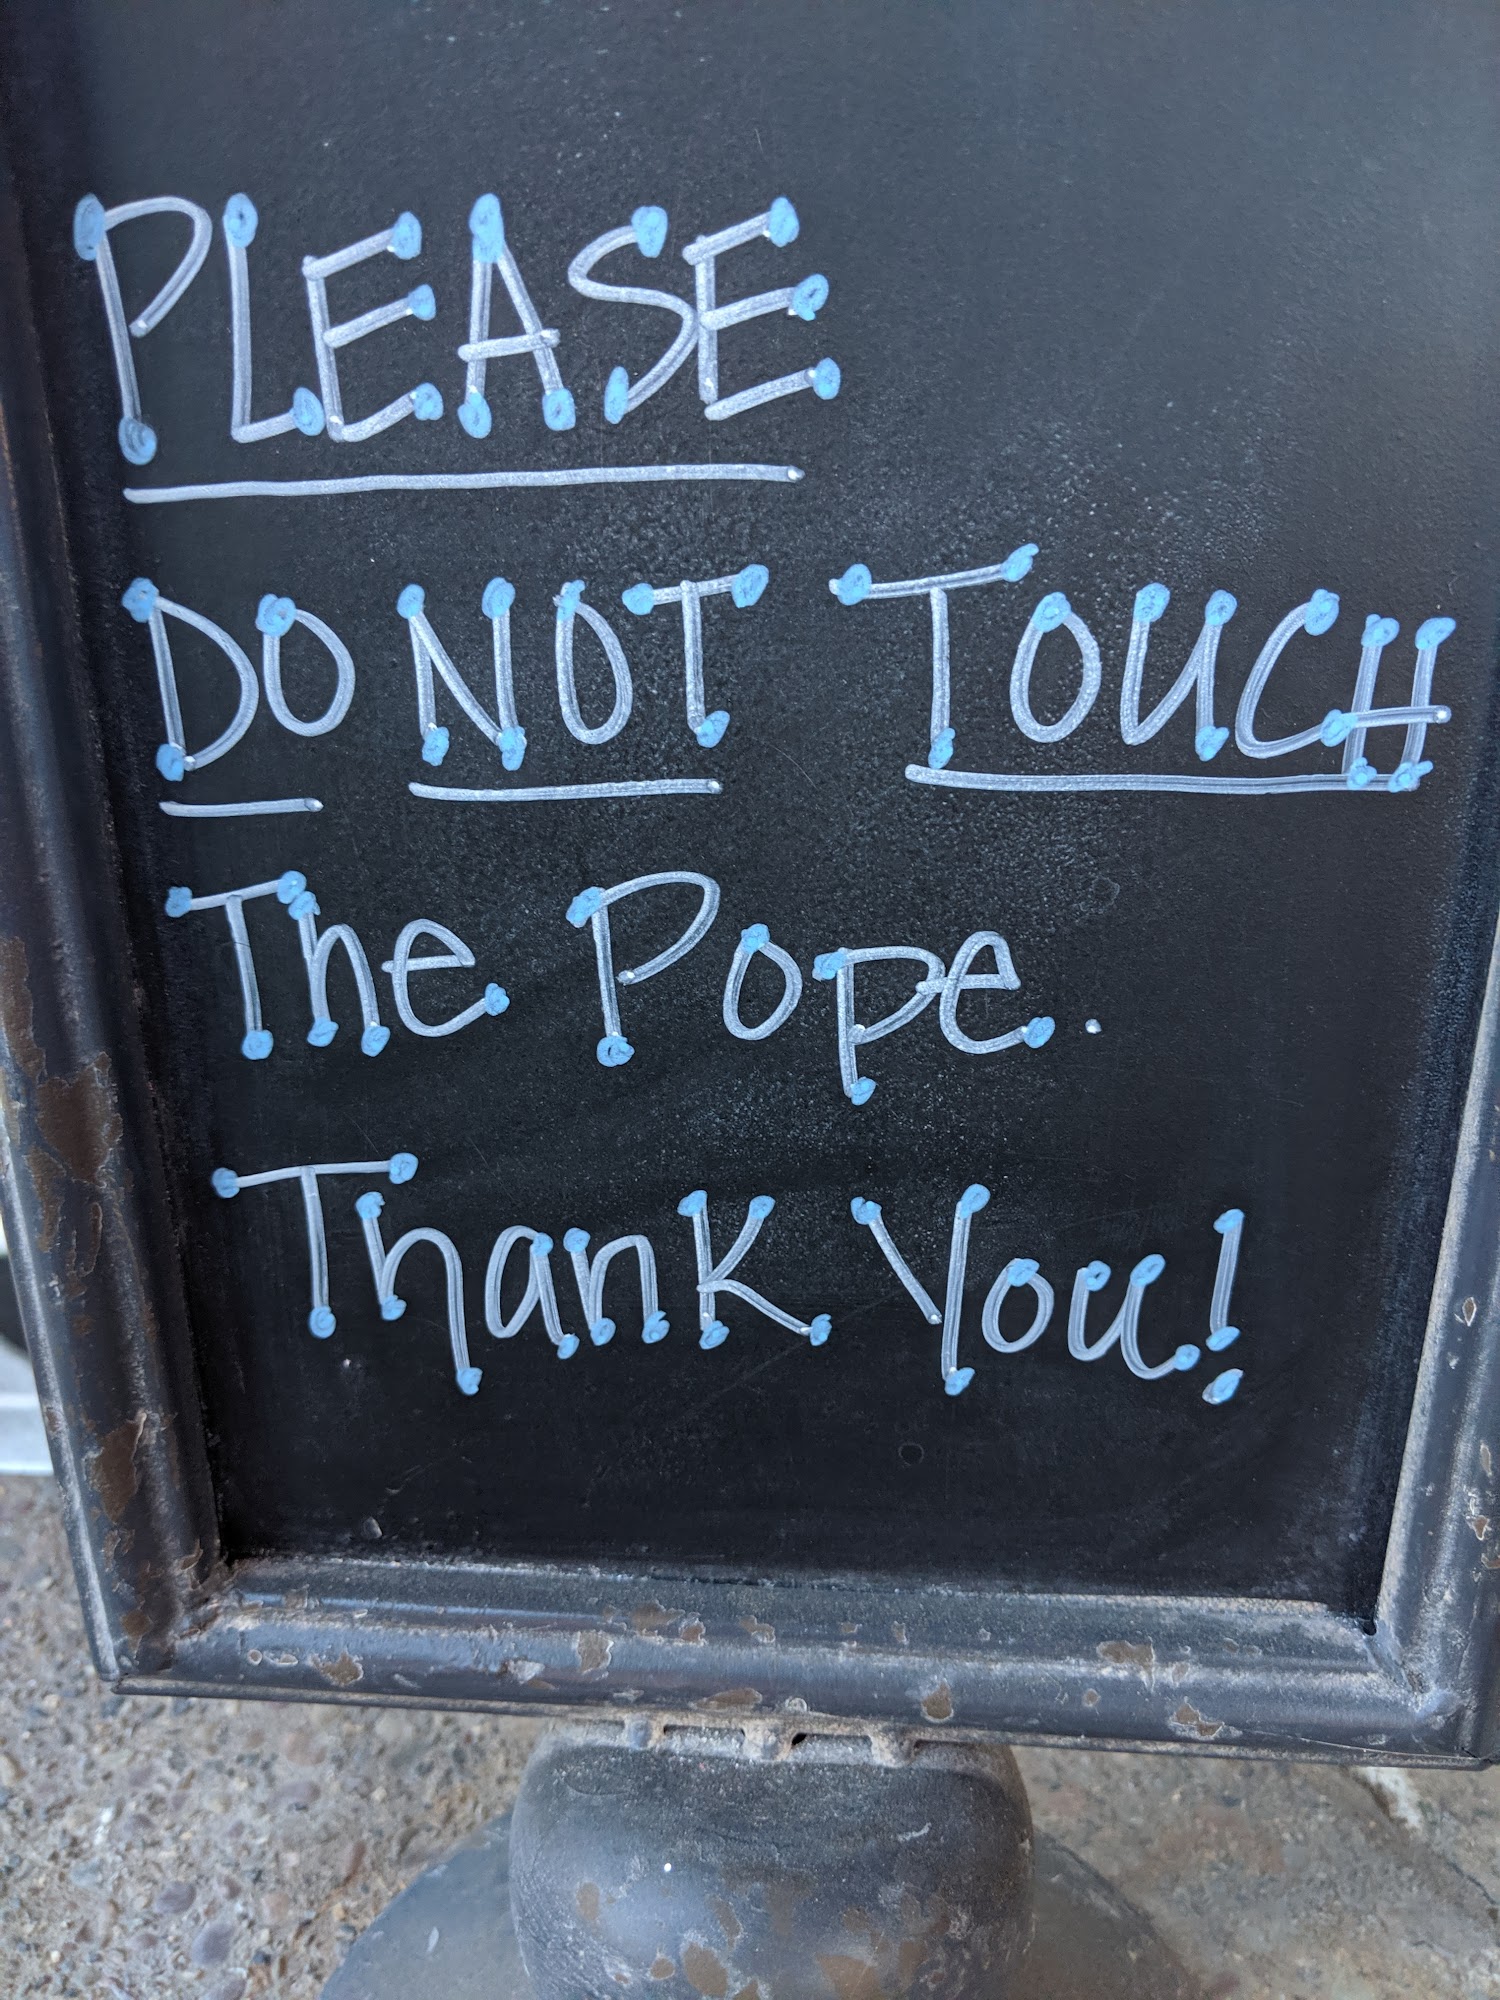 PLEASE
DO NOT TOUCH
The Pope.
Thank You!